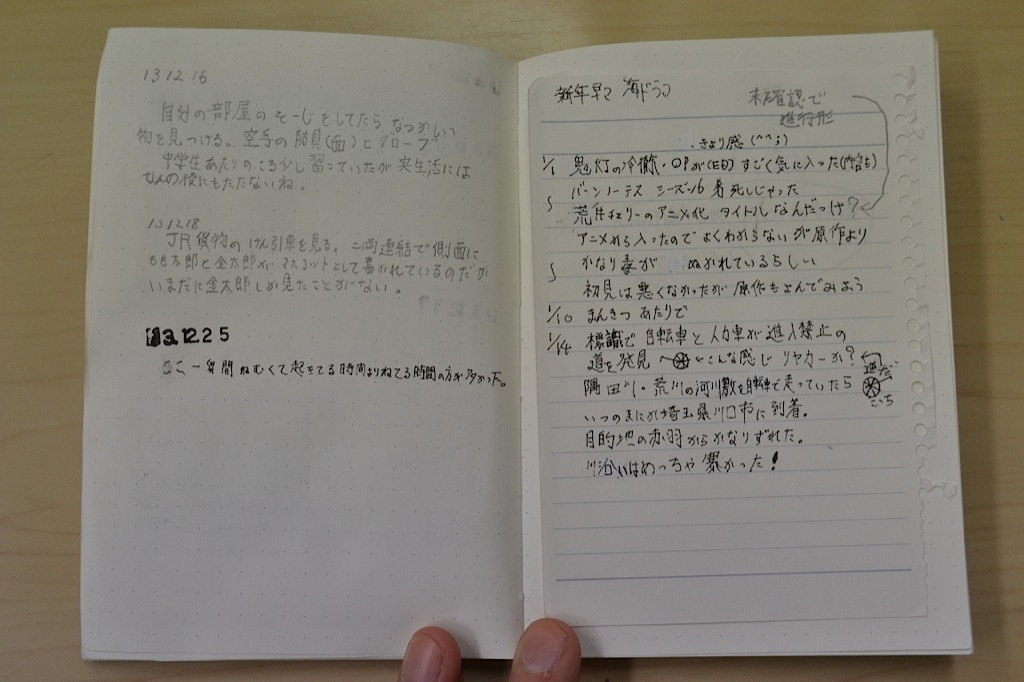 13 12 16
自分の部屋のそーじをしてたら なつかしい
物を見つける。空手の防具(面)とグローブ
中学生あたりのころ少し習っていたが実生活には
なんの役にもたたないね。
13 12 18
JR貨物のけん引車を見る。二両連結で側面に
もも太郎と金太郎がマスコットとして書かれているのだが
いまだに金太郎しか見たことがない。
13.12.25
ここ一週間ねむくて起きてる時間よりねてる時間の方が多かった。
新年早々 海ドラマ
未確認で
進行形
きょり感(^^;)
1/1 鬼灯の冷徹・OPが(ED) すごく気に入った(内容も)
バーンノーテス シーズン6 着 死んじゃった
荒井チェリーのアニメ化 タイトルなんだっけ?
アニメから入ったのでよくわからないが原作より
かなり毒が ぬかれているらしい
初見は悪くなかったが 原作もよんでみよう
1/10 まんきつ あたりで
1/14 標識で 自転車と人力車が進入禁止の
道を発見 ←こんな感じ リヤカーか?
逆だ
こっち
隅田川・荒川の河川敷を自転車で走っていたら
いつのまにか埼玉県川口市に到着。
目的地の赤羽からかなりずれた。
川沿いはめっちゃ寒かった!